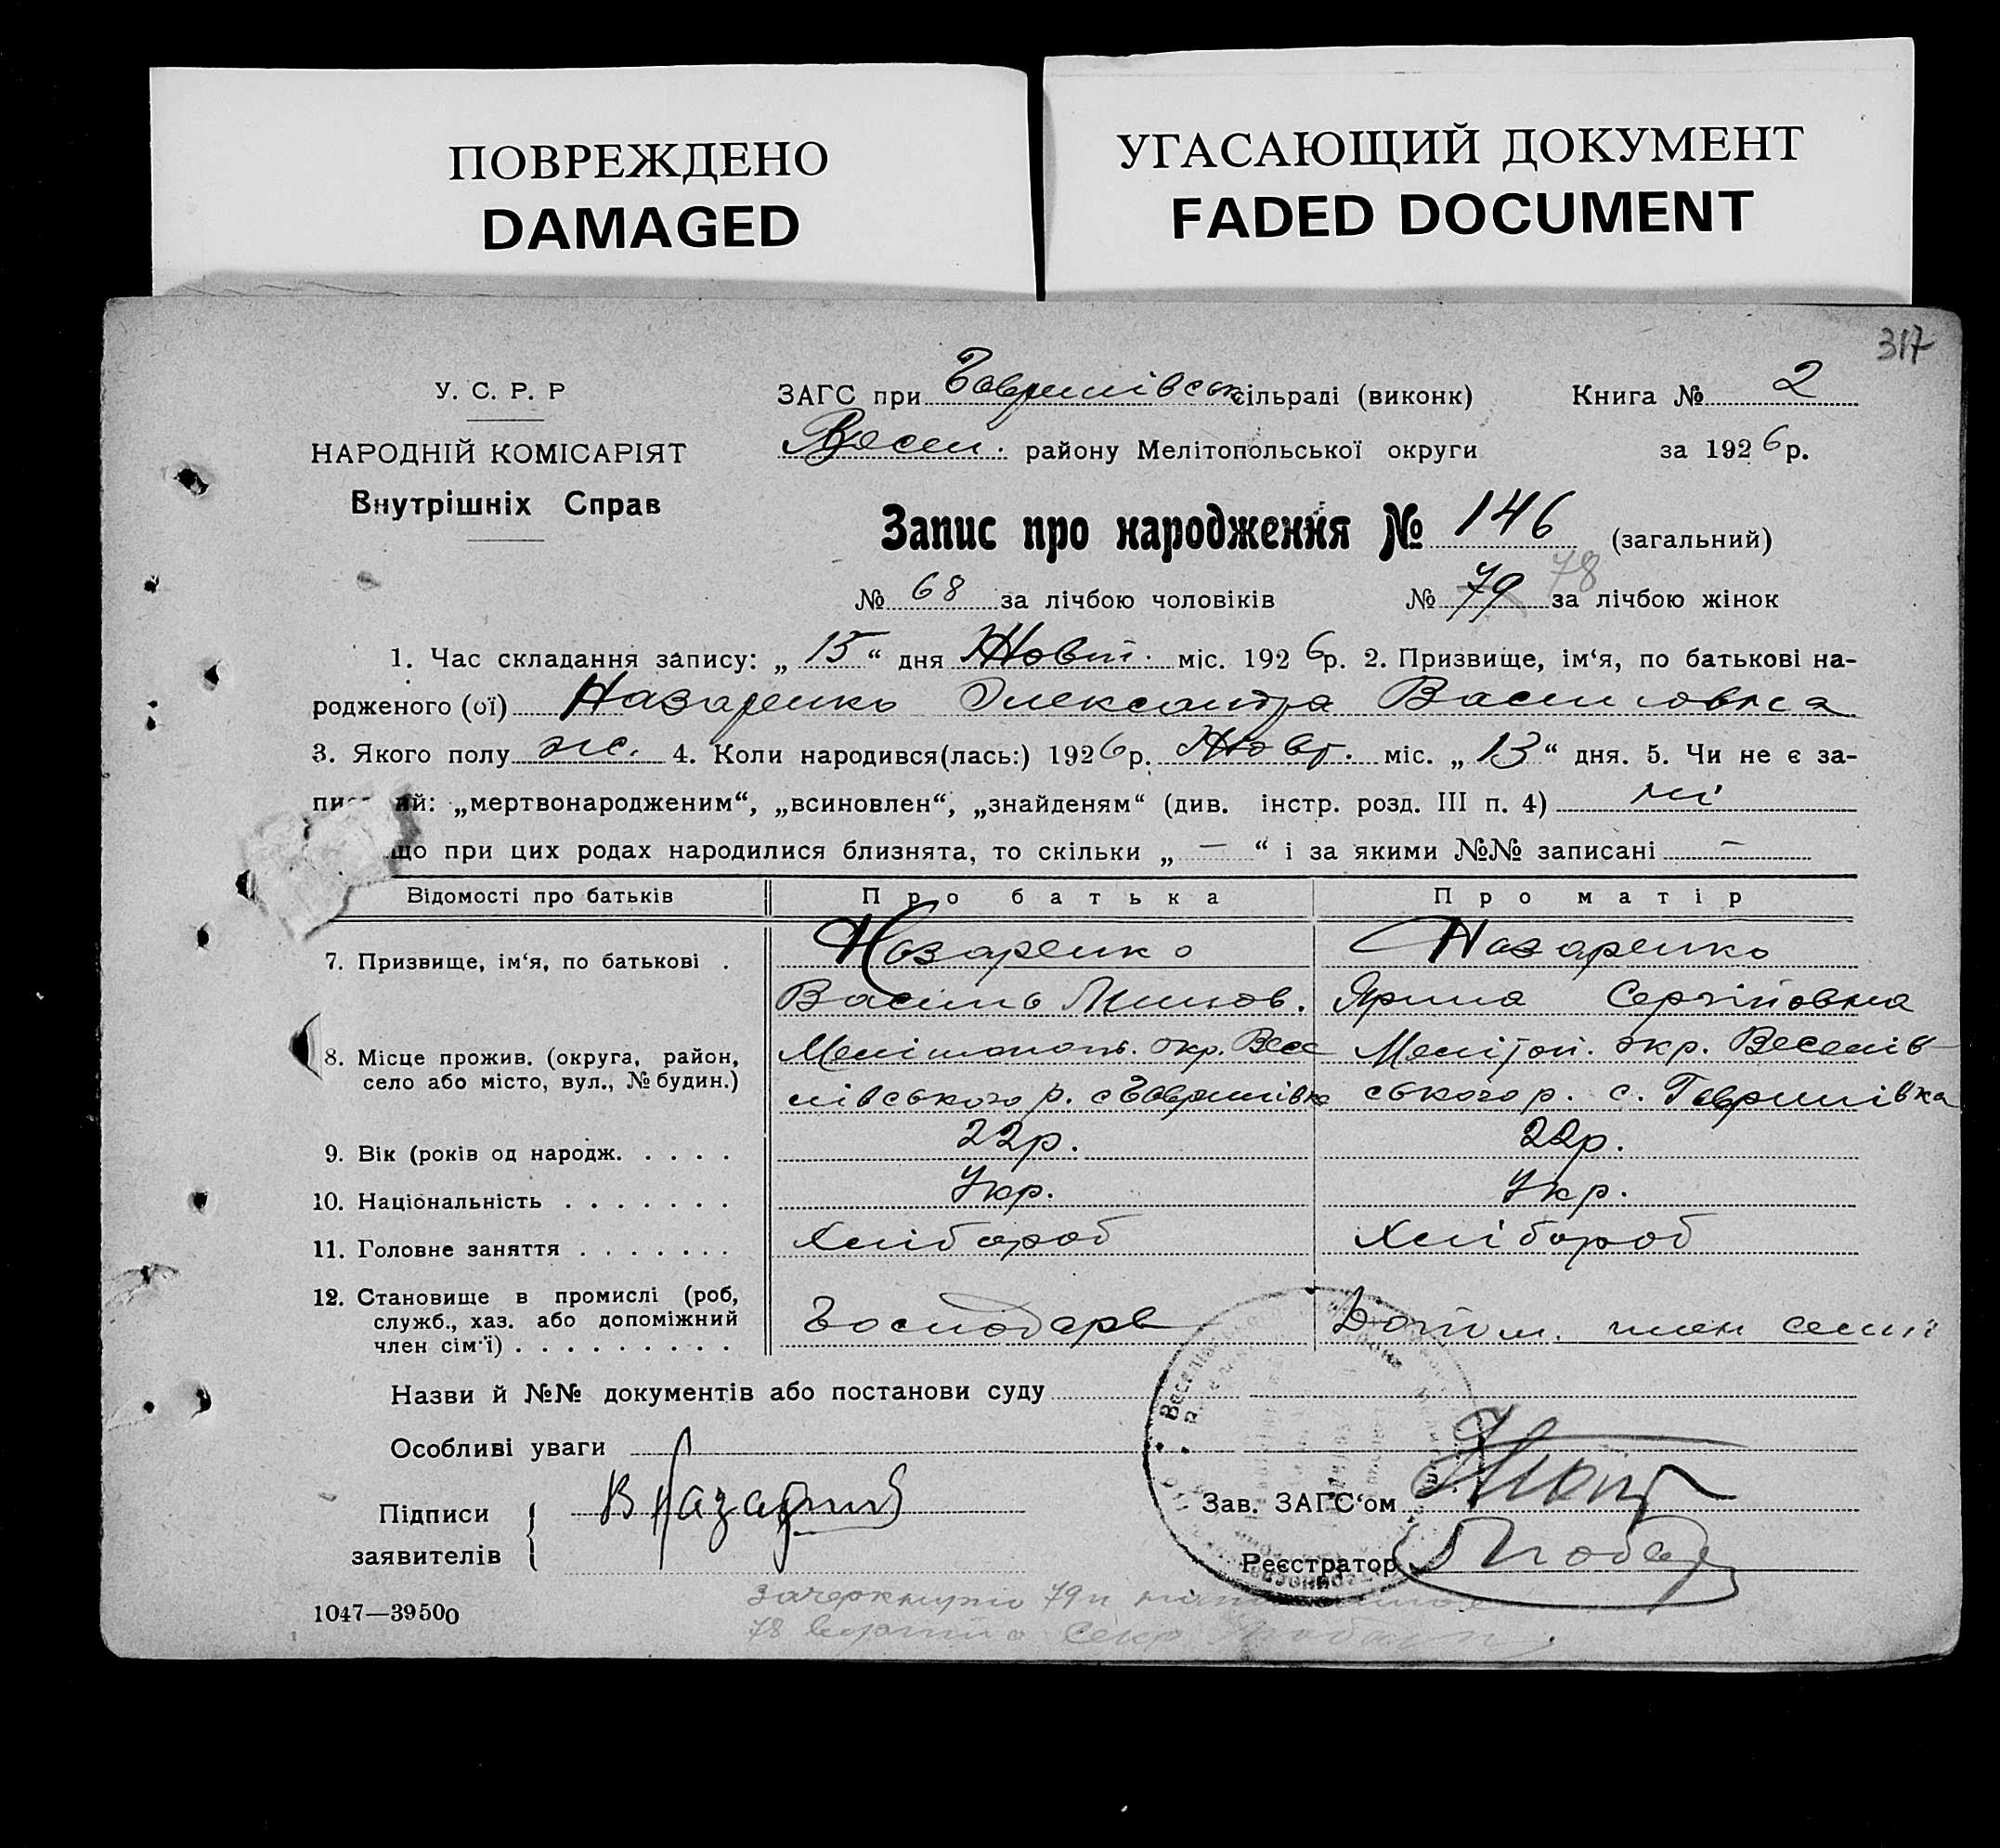 ПОВРЕЖДЕНО
DAMAGED
УГАСАЮЩИЙ ДОКУМЕНТ
FADED DOCUMENT
317
У. С. Р. Р
НАРОДНІЙ КОМІСАРІЯТ
Внутрішніх Справ
ЗАГС при Гаврилівськ сільраді (виконк)
Весел. району Мелітопольської округи
Книга № 2
за 1926 р.
Запис про народження № 146 (загальний)
№ 68 за лічбою чоловіків № 79 78 за лічбою жінок
1. Час складання запису: „ 15 “ дня Жовт. міс. 1926 р. 2. Призвище, ім‘я, по батькові на-
родженого (ої) Назаренко Олександра Василовна
3. Якого полу ж. 4. Коли народився(лась:) 1926 р. Жовт. міс. „ 13 “ дня. 5. Чи не є за-
ий: „мертвонародженим“, „всиновлен“, „знайденям“ (див. інстр. розд. III п. 4) ні
що при цих родах народилися близнята, то скільки „ — “ і за якими №№ записані —
Відомості про батьків Про батька Про матір
7. Призвище, ім‘я, по батькові . Назаренко Назаренко
Василь Минов. Ярина Сергійовна
8. Місце прожив. (округа, район, село або місто, вул., № будин.) Мелітополь. окр. Весе Мелітоп. окр. Веселів
лівського р. с Гаврилівка ського р. с. Гаврилівка
9. Вік (років од народж. . . . . 22 р. 22 р.
10. Національність . . . . . . . Укр. Укр.
11. Головне заняття . . . . . . . Хлібороб Хлібороб
12. Становище в промислі (роб,
служб., хаз. або допоміжний
член сім‘ї) . . . . . . . . . Господарь Допом. член семії
Назви й №№ документів або постанови суду
Особливі уваги
Підписи
заявителів
Зав. ЗАГС‘ом
Реєстратор
1047—39500
зачеркнуто 79 и
78 Секр